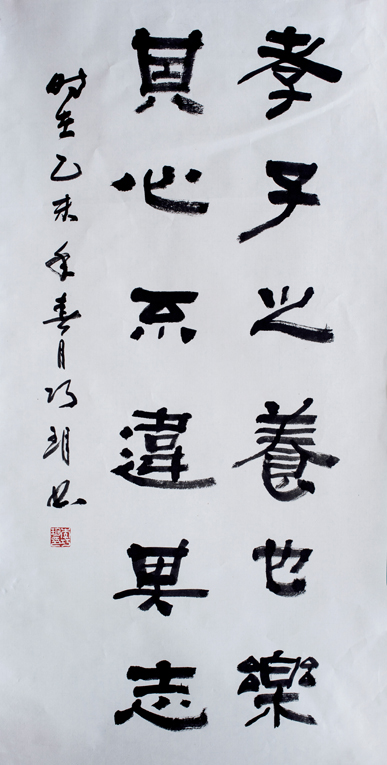 孝子之養也樂
其心不違其志
時在乙未年春月